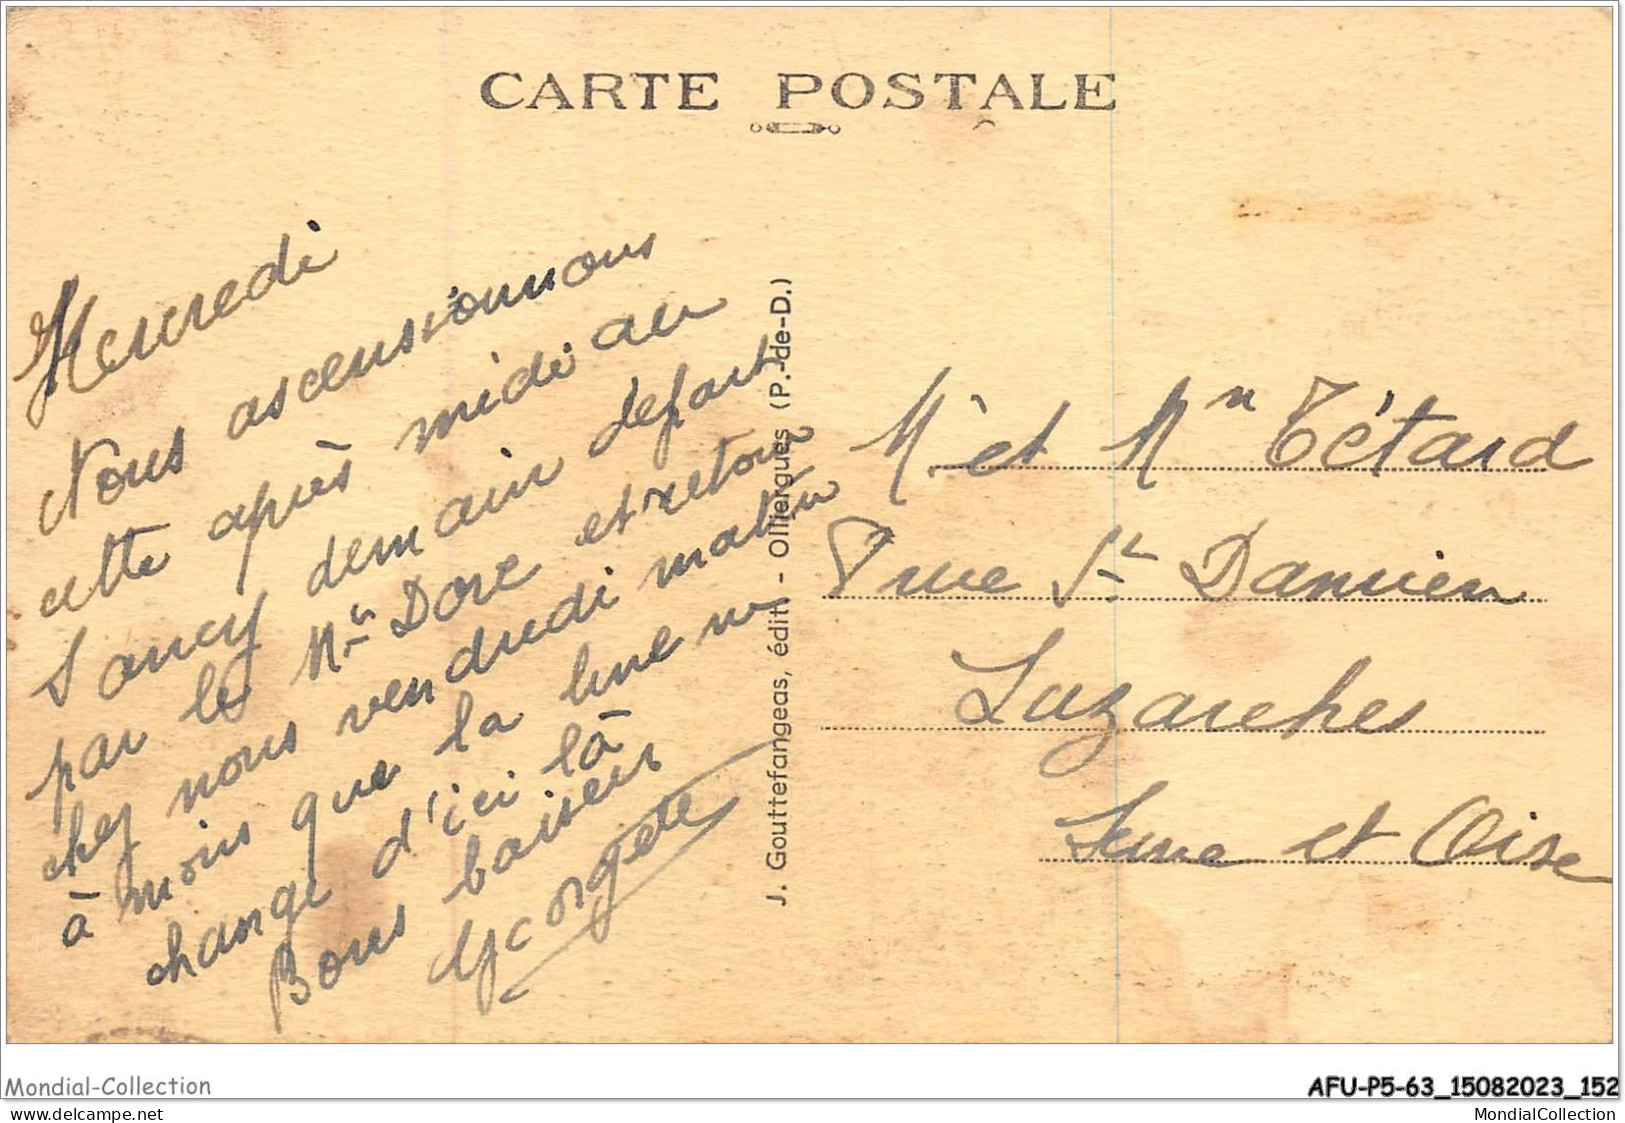 CARTE POSTALE
Mercredi
Nous ascensionnons
cette après midi au
Sancy demain départ
par le Mt Dore et retour
chez nous vendredi matin
à moins que la lune ne
change d'ici là
Bons baisers
Georgette
J. Gouttefangeas, édit. - Olliergues (P.-de-D.)
Mr et Mm Tétard
8 rue St Damien
Luzarches
Seine et Oise
Mondial-Collection
AFU-P5-63_15082023_152
www.delcampe.net
MondialCollection